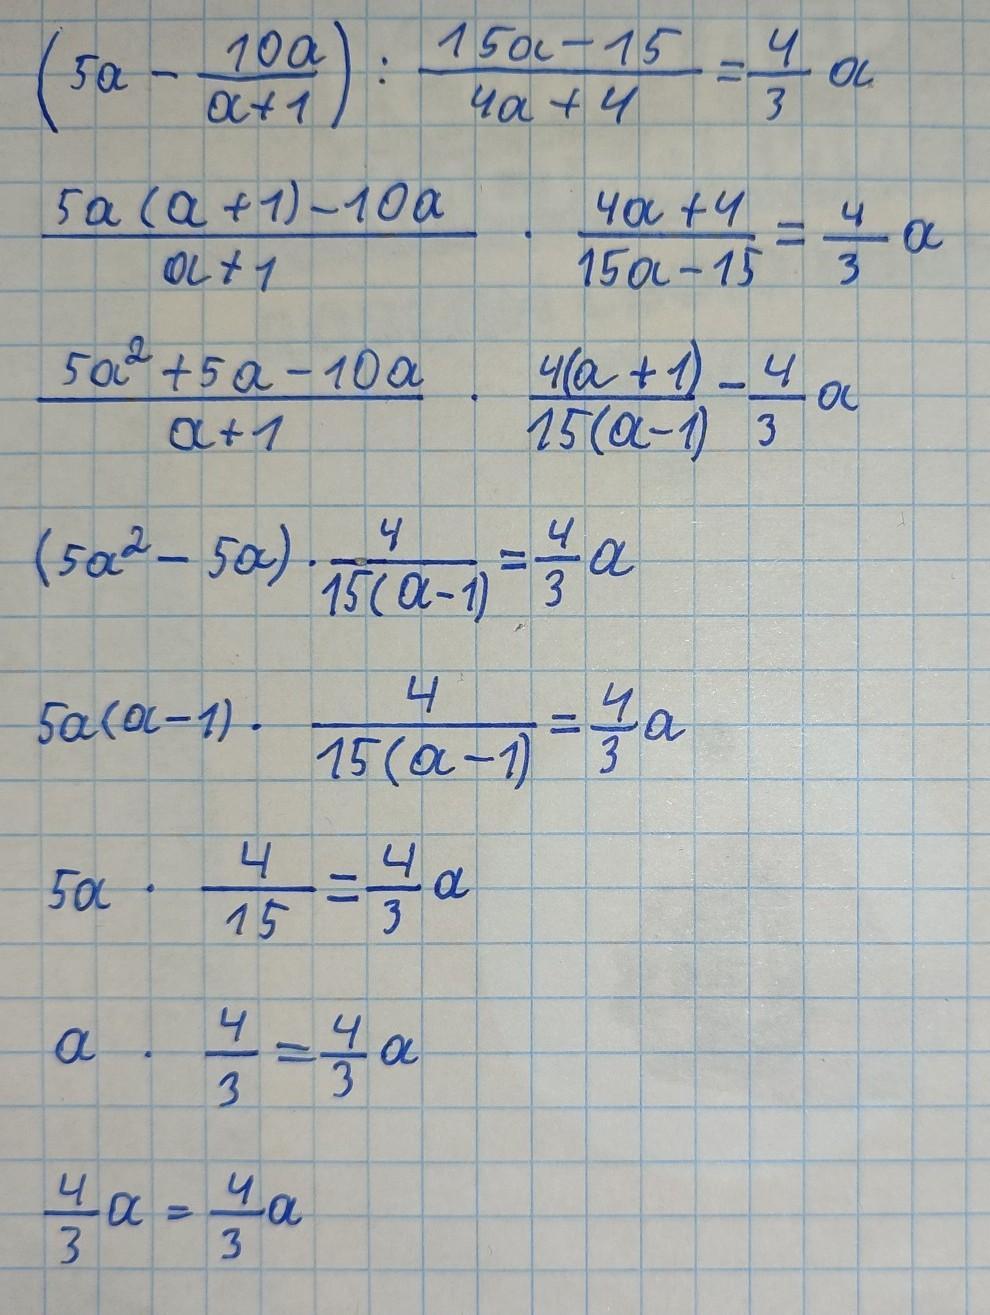 (5a - 10a/(a+1)) : (15a-15)/(4a+4) = 4/3 a
(5a(a+1)-10a)/(a+1) · (4a+4)/(15a-15) = 4/3 a
(5a²+5a-10a)/(a+1) · 4(a+1)/15(a-1) - 4/3 a
(5a² - 5a) · 4/15(a-1) = 4/3 a
5a(a-1) · 4/15(a-1) = 4/3 a
5a · 4/15 = 4/3 a
a · 4/3 = 4/3 a
4/3 a = 4/3 a